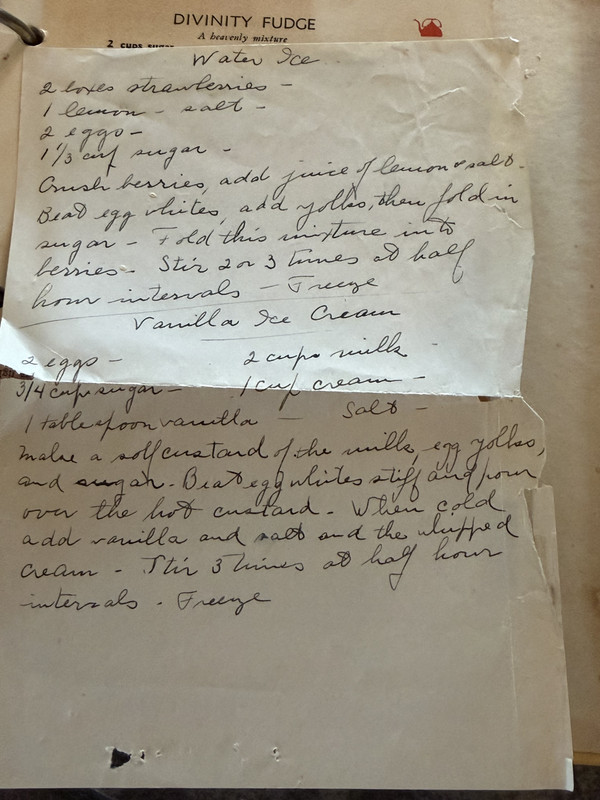 DIVINITY FUDGE
A heavenly mixture
2 cups sugar
Water Ice
2 boxes strawberries -
1 lemon - salt -
2 eggs -
1 1/3 cup sugar -
Crush berries, add juice of lemon & salt -
Beat egg whites, add yolks, then fold in
sugar - Fold this mixture into
berries - Stir 2 or 3 times at half
hour intervals - Freeze
Vanilla Ice Cream
2 eggs - 2 cups milk -
3/4 cup sugar - 1 cup cream -
1 tablespoon vanilla - Salt -
Make a soft custard of the milk, egg yolks,
and sugar - Beat egg whites stiff and pour
over the hot custard - When cold
add vanilla and salt and the whipped
cream - Stir 3 times at half hour
intervals - Freeze